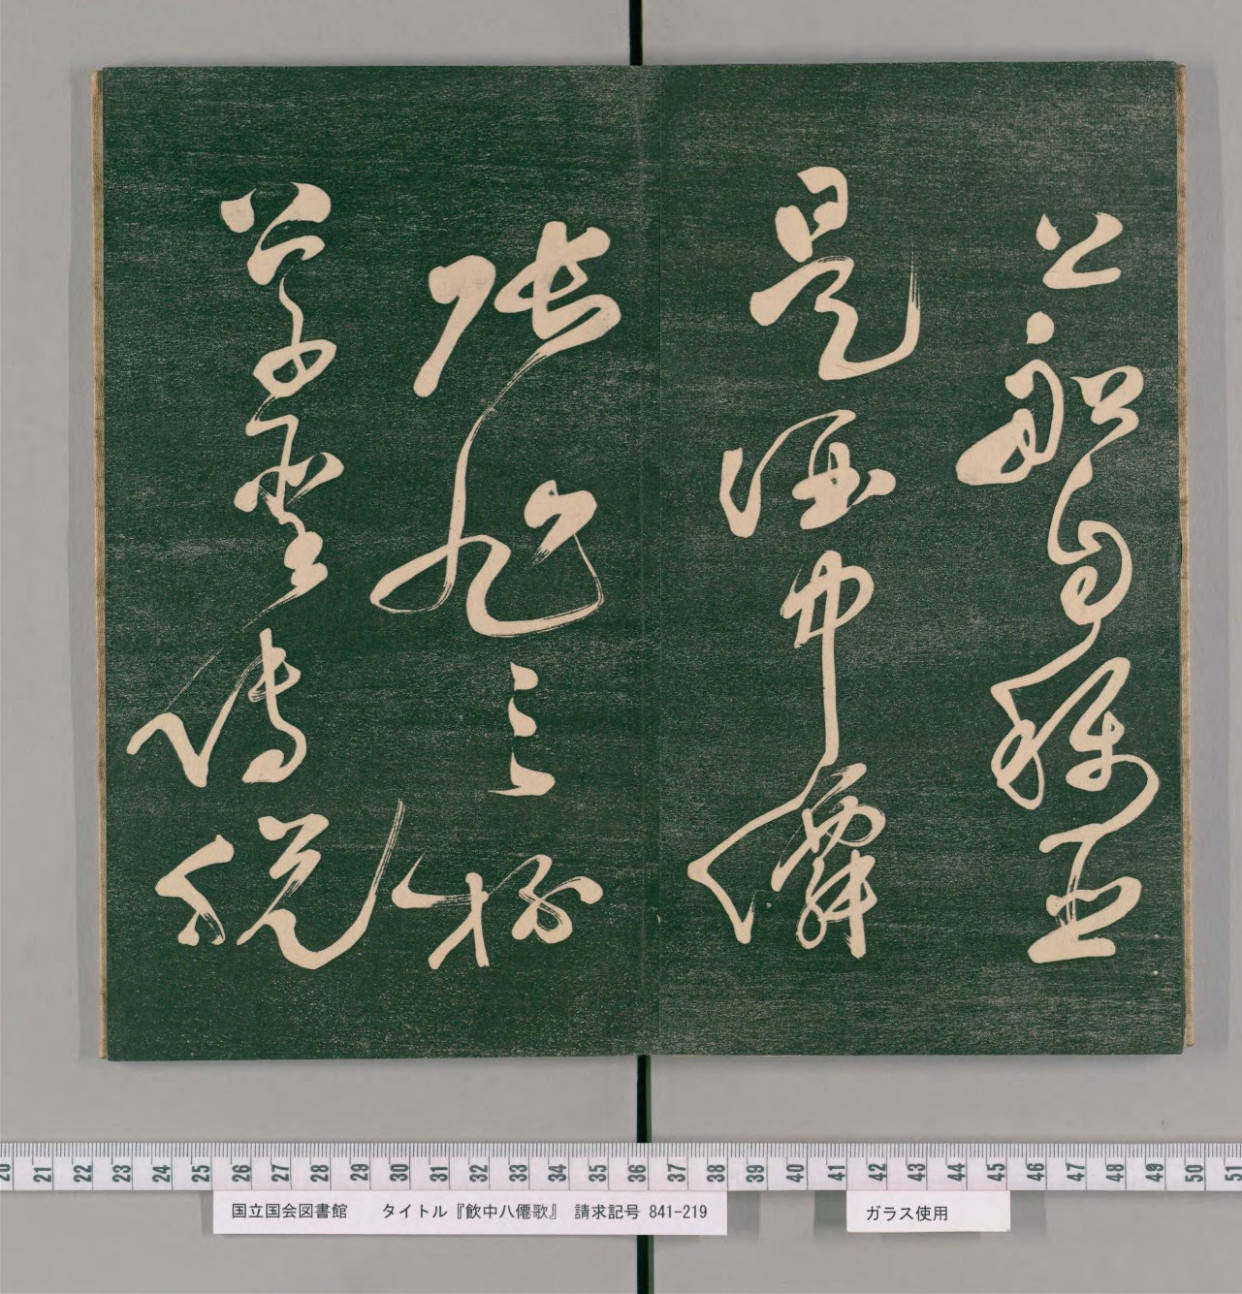 上船自稱臣
是酒中僊
張旭三杯
草聖傳脱
20 21 22 23 24 25 26 27 28 29 30 31 32 33 34 35 36 37 38 39 40 41 42 43 44 45 46 47 48 49 50 51
国立国会図書館 タイトル『飲中八僊歌』 請求記号 841-219
ガラス使用